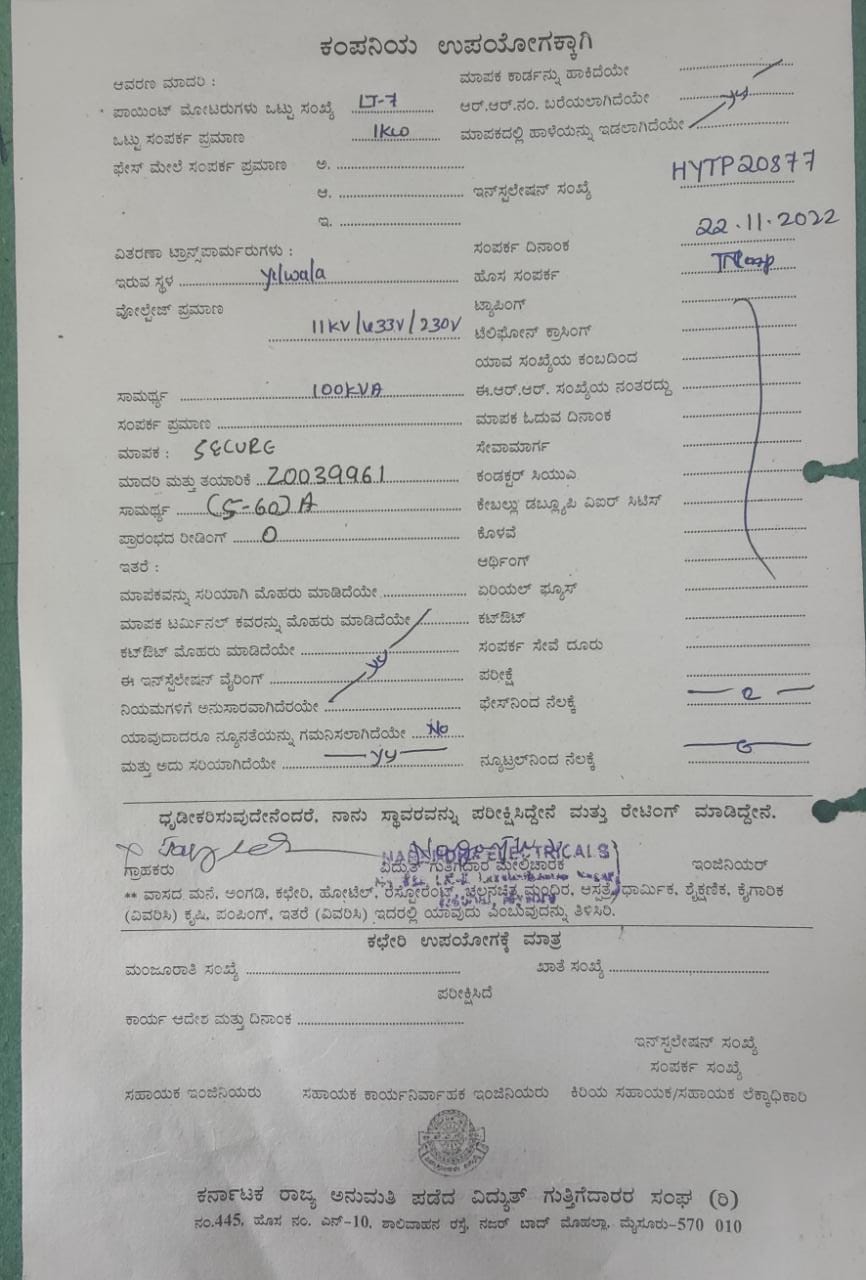 ಕಂಪನಿಯ ಉಪಯೋಗಕ್ಕಾಗಿ
ಆವರಣ ಮಾದರಿ :
ಪಾಯಿಂಟ್ ಮೋಟರುಗಳು ಒಟ್ಟು ಸಂಖ್ಯೆ LT-7
ಒಟ್ಟು ಸಂಪರ್ಕ ಪ್ರಮಾಣ 1KW
ಫೇಸ್ ಮೇಲೆ ಸಂಪರ್ಕ ಪ್ರಮಾಣ ಅ. ....................
ಆ. ....................
ಇ. ....................
ವಿತರಣಾ ಟ್ರಾನ್ಸ್‌ಪಾರ್ಮರುಗಳು :
ಇರುವ ಸ್ಥಳ Yelwala
ವೋಲ್ಟೇಜ್ ಪ್ರಮಾಣ
11KV/433V/230V
ಸಾಮರ್ಥ್ಯ 100KVA
ಸಂಪರ್ಕ ಪ್ರಮಾಣ ....................
ಮಾಪಕ : SECURE
ಮಾದರಿ ಮತ್ತು ತಯಾರಿಕೆ Z0039961
ಸಾಮರ್ಥ್ಯ (5-60)A
ಪ್ರಾರಂಭದ ರೀಡಿಂಗ್ 0
ಇತರೆ :
ಮಾಪಕವನ್ನು ಸರಿಯಾಗಿ ಮೊಹರು ಮಾಡಿದೆಯೇ ....................
ಮಾಪಕ ಟರ್ಮಿನಲ್ ಕವರನ್ನು ಮೊಹರು ಮಾಡಿದೆಯೇ
ಕಟ್‌ಔಟ್ ಮೊಹರು ಮಾಡಿದೆಯೇ ....................
ಈ ಇನ್‌ಸ್ಟಲೇಷನ್ ವೈರಿಂಗ್ .................... yy
ನಿಯಮಗಳಿಗೆ ಅನುಸಾರವಾಗಿದೆರಯೇ ....................
ಯಾವುದಾದರೂ ನ್ಯೂನತೆಯನ್ನು ಗಮನಿಸಲಾಗಿದೆಯೇ No
ಮತ್ತು ಅದು ಸರಿಯಾಗಿದೆಯೇ yy
ಮಾಪಕ ಕಾರ್ಡನ್ನು ಹಾಕಿದೆಯೇ ....................
ಆರ್.ಆರ್.ನಂ. ಬರೆಯಲಾಗಿದೆಯೇ yy
ಮಾಪಕದಲ್ಲಿ ಹಾಳೆಯನ್ನು ಇಡಲಾಗಿದೆಯೇ ....................
ಇನ್‌ಸ್ಟಲೇಷನ್ ಸಂಖ್ಯೆ HYTP20877
ಸಂಪರ್ಕ ದಿನಾಂಕ 22.11.2022
ಹೊಸ ಸಂಪರ್ಕ
ಟ್ಯಾಪಿಂಗ್ ....................
ಟೆಲಿಫೋನ್ ಕ್ರಾಸಿಂಗ್ ....................
ಯಾವ ಸಂಖ್ಯೆಯ ಕಂಬದಿಂದ ....................
ಈ.ಆರ್.ಆರ್. ಸಂಖ್ಯೆಯ ನಂತರದ್ದು ....................
ಮಾಪಕ ಓದುವ ದಿನಾಂಕ ....................
ಸೇವಾಮಾರ್ಗ ....................
ಕಂಡಕ್ಟರ್ ಸಿಯುಎ ....................
ಕೇಬಲ್ಲು ಡಬ್ಲ್ಯೂಪಿ ವಿಐರ್ ಸಿಟಿಸ್ ....................
ಕೊಳವೆ ....................
ಆರ್ಥಿಂಗ್ ....................
ಏರಿಯಲ್ ಫ್ಯೂಸ್ ....................
ಕಟ್‌ಔಟ್ ....................
ಸಂಪರ್ಕ ಸೇವೆ ದೂರು ....................
ಪರೀಕ್ಷೆ ....................
ಫೇಸ್‌ನಿಂದ ನೆಲಕ್ಕೆ ....................
ನ್ಯೂಟ್ರಲ್‌ನಿಂದ ನೆಲಕ್ಕೆ ....................
ಧೃಡೀಕರಿಸುವುದೇನೆಂದರೆ, ನಾನು ಸ್ಥಾವರವನ್ನು ಪರೀಕ್ಷಿಸಿದ್ದೇನೆ ಮತ್ತು ರೇಟಿಂಗ್ ಮಾಡಿದ್ದೇನೆ.
ELECTRICALS
ಗ್ರಾಹಕರು ವಿದ್ಯುತ್ ಗುತ್ತಿಗೆದಾರ ಮೇಲಿಚಾರಕ ಇಂಜಿನಿಯರ್
** ವಾಸದ ಮನೆ, ಅಂಗಡಿ, ಕಛೇರಿ, ಹೋಟೆಲ್, ರೆಸ್ಟೋರೆಂಟ್, ಚಲನಚಿತ್ರ ಮಂದಿರ, ಆಸ್ಪತ್ರೆ ಧಾರ್ಮಿಕ, ಶೈಕ್ಷಣಿಕ, ಕೈಗಾರಿಕ
(ವಿವರಿಸಿ) ಕೃಷಿ, ಪಂಪಿಂಗ್, ಇತರೆ (ವಿವರಿಸಿ) ಇದರಲ್ಲಿ ಯಾವುದು ಎಂಬುವುದನ್ನು ತಿಳಿಸಿರಿ.
ಕಛೇರಿ ಉಪಯೋಗಕ್ಕೆ ಮಾತ್ರ
ಮಂಜೂರಾತಿ ಸಂಖ್ಯೆ .................... ಖಾತೆ ಸಂಖ್ಯೆ ....................
ಪರೀಕ್ಷಿಸಿದೆ
ಕಾರ್ಯ ಆದೇಶ ಮತ್ತು ದಿನಾಂಕ ....................
ಇನ್‌ಸ್ಟಲೇಷನ್ ಸಂಖ್ಯೆ
ಸಂಪರ್ಕ ಸಂಖ್ಯೆ
ಸಹಾಯಕ ಇಂಜಿನಿಯರು ಸಹಾಯಕ ಕಾರ್ಯನಿರ್ವಾಹಕ ಇಂಜಿನಿಯರು ಕಿರಿಯ ಸಹಾಯಕ/ಸಹಾಯಕ ಲೆಕ್ಕಾಧಿಕಾರಿ
ಕರ್ನಾಟಕ ರಾಜ್ಯ ಅನುಮತಿ ಪಡೆದ ವಿದ್ಯುತ್ ಗುತ್ತಿಗೆದಾರರ ಸಂಘ (ರಿ)
ನಂ.445, ಹೊಸ ನಂ. ಎನ್-10, ಶಾಲಿವಾಹನ ರಸ್ತೆ, ನಜರ್ ಬಾದ್ ಮೊಹಲ್ಲಾ, ಮೈಸೂರು-570 010